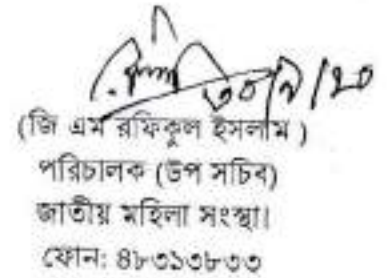 ৩০/৯/২০
(জি এম রফিকুল ইসলাম )
পরিচালক (উপ সচিব)
জাতীয় মহিলা সংস্থা।
ফোন: ৪৮৩১৩৮৩৩